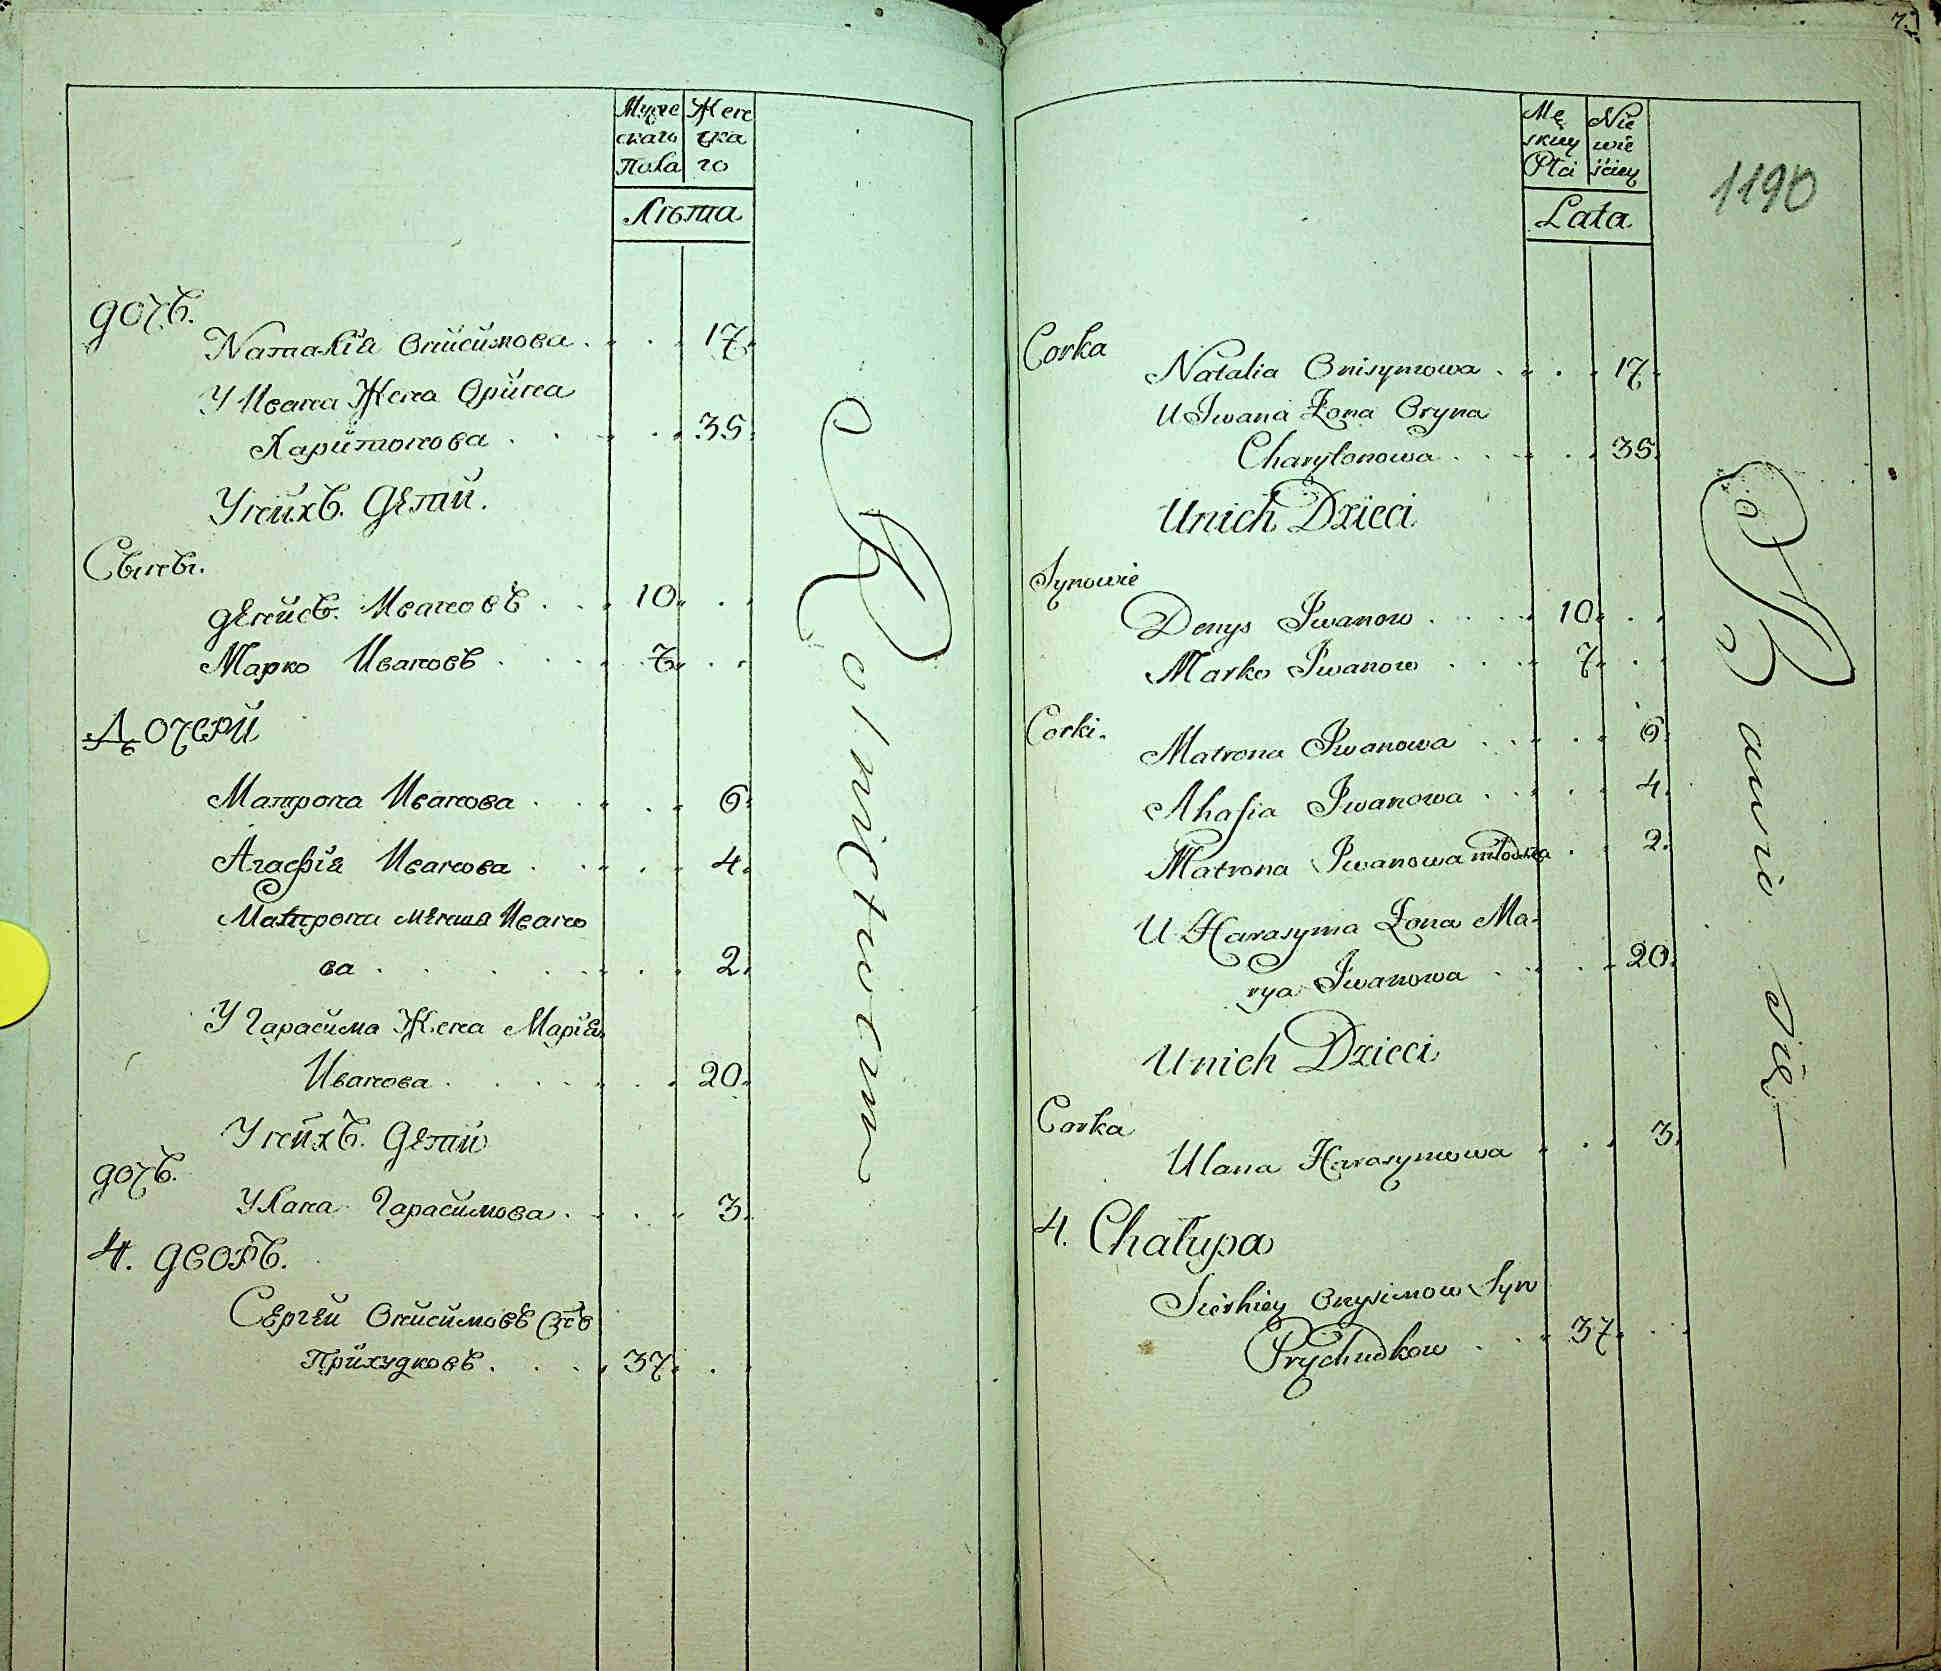 Мужескаго Пола
Женскаго
Лѣта
дочь.
Наталія Онисимова. 17.
У Ивана Жена Орина
Харитонова 35.
У нихъ. Дети.
Сыны.
Денисъ. Ивановъ 10.
Марко Ивановъ 7.
Дочери
Матрона Иванова 6.
Агафія Иванова 4.
Матрона менша Ивано
ва 2.
У Гарасима Жена Марія
Иванова 20.
У нихъ. Дети
дочь.
Улана Гарасимова. 3.
4. дворъ.
Сергей Онисимовъ Снъ
Прихудковъ. 37.
Rolnictwem
Męskiey Płci
Niewieściey
Lata
1190
Corka
Natalia Onisymowa 17.
U Iwana Żona Oryna
Charytonowa 35.
Unich Dzieci
Synowie
Denys Iwanow 10.
Marko Iwanow 7.
Corki.
Matrona Iwanowa 6.
Ahafia Iwanowa 4.
Matrona Iwanowa młodsza 2.
U Harasyma Żona Ma-
rya Iwanowa 20.
Unich Dzieci
Corka
Ulana Harasymowa 3.
4. Chałupa
Sierhiey Onysimow Syn
Prychudkow 37.
Bawio się